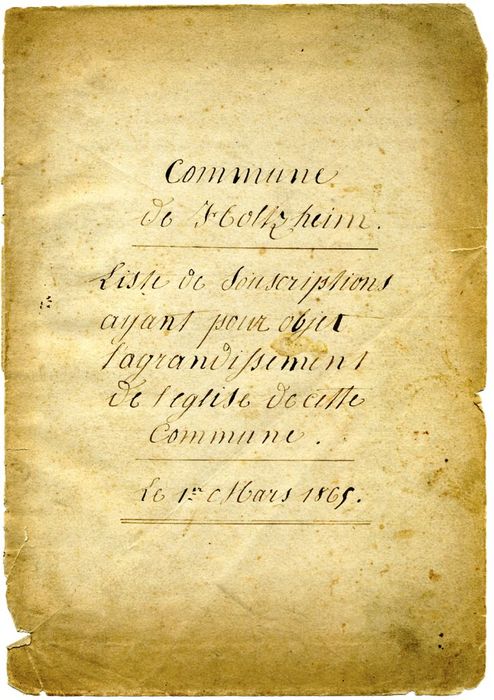 Commune
de Holtzheim.
Liste de Souscriptions
ayant pour objet
l'agrandissement
de l'eglise de cette
Commune.
Le 1er Mars 1865.